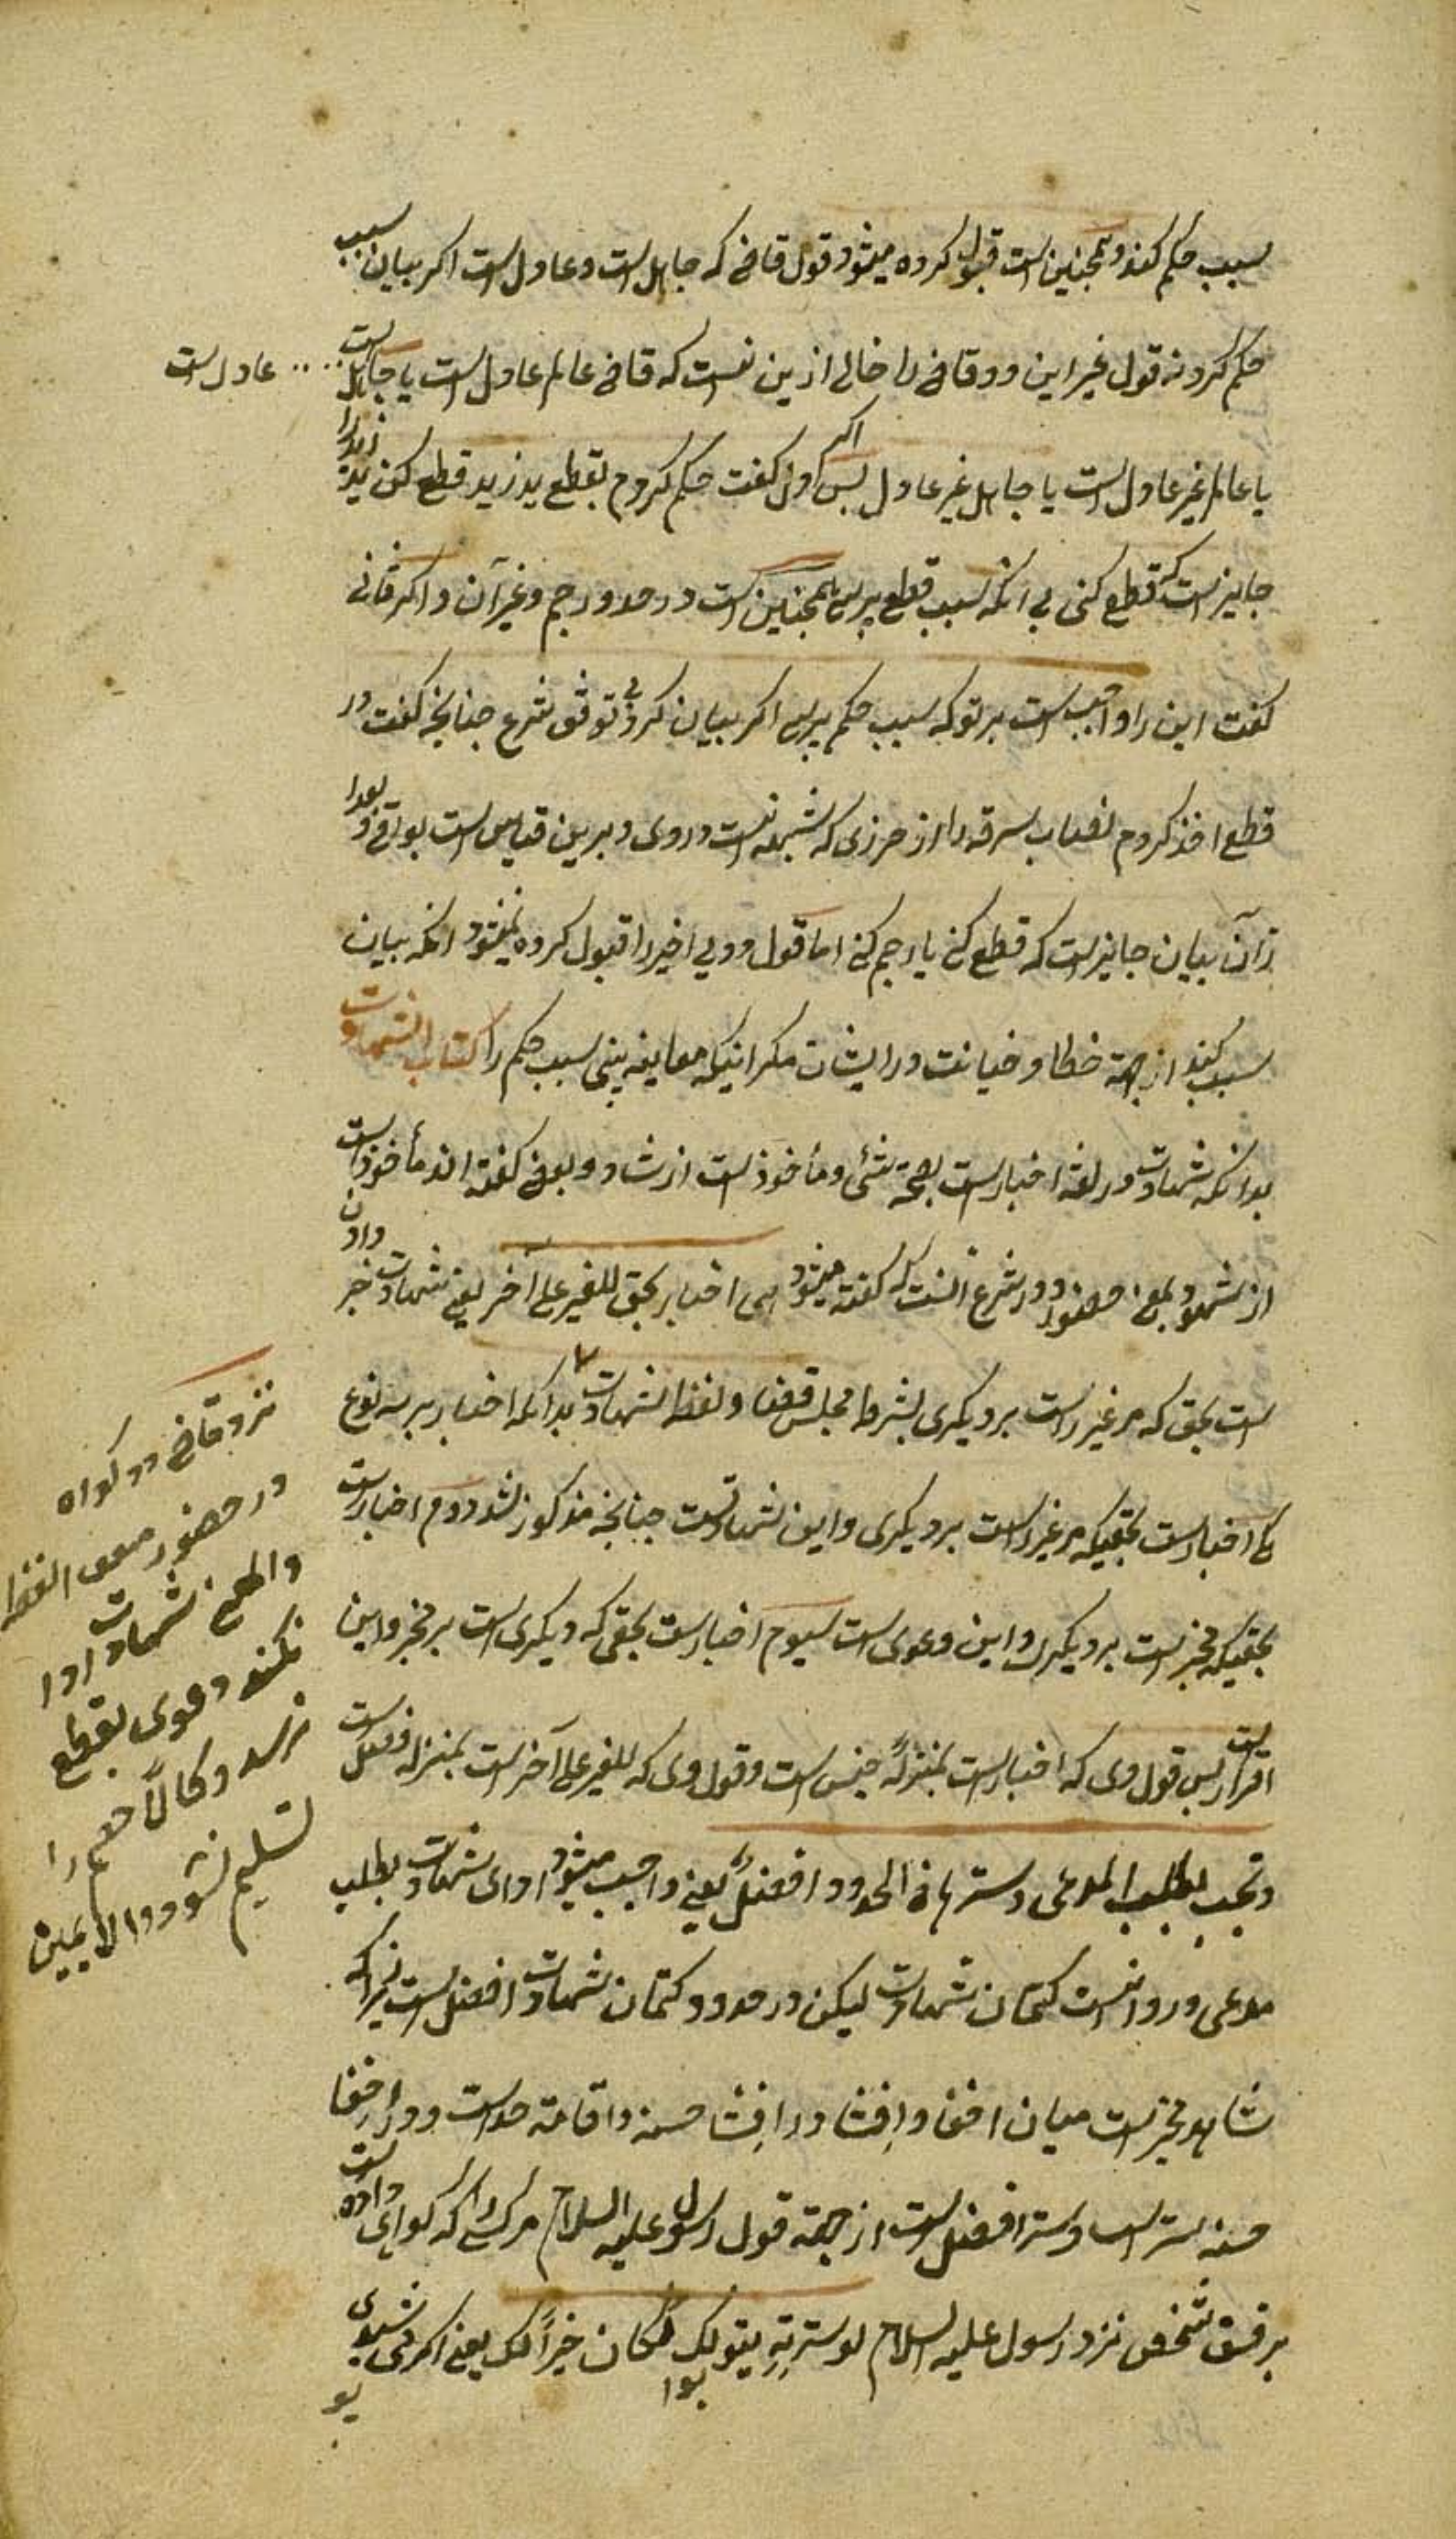 سبب حکم کند و همچنین است قبول کرده میشود قول قاضی که جاهل است و عادل است اکر بیان سبب
حکم کرد نه قول غیر این دو قاضی را خالی ازین نیست که قاضی عالم عادل است یا جاهل است
عادل است
یا عالم غیر عادل است یا جاهل غیر عادل پس اکر اول کفت حکم کردم بقطع ید زید قطع کن ید زید را
جایز است که قطع کنی بی آنکه سبب قطع پرسی همچنین است در حد و رجم و غیر آن و اکر ثانی
کفت این را واجب است بر تو که سبب حکم پرسی اکر بیان کرد بر وفق شرع چنانچه کفت در
قطع اخذ کردم نصاب سرقه را از حرزی که شبهه نیست در وی و برین قیاس است بواقی بعد ا
ز آن بیان جایز است که قطع کنی یا رجم کنی اما قول دویی اخیر را قبول کرده نمیشود آنکه بیان
سبب کند از جهة خطا و خیانت در ایشان مکر اینکه معاینه بینی سبب حکم را کتاب الشهادت
بدانکه شهادت در لغة اخبار است بصحة شئی و مأخوذ است از شاد و بعضی کفته اند مأخوذ است
از شهود بمعنی حضور و در شرع آنست که کفته میشود هی اخبار بحق للغیر علی آخر یعنی شهادت خبر دادن
است بحق که مر غیر راست بر دیکری بشرط مجلس قضا و لفظ شهادت بدانکه اخبار بر سه نوع
یکی اخبار است بحقیکه مر غیر راست بر دیکری و این شهادتست چنانچه مذکور شد دوم اخبار است
بحقیکه مخبر است بر دیکری و این دعوی است سیوم اخبار است بحقی که دیکری است بر مخبر و این
اقرار است پس قول وی که اخبار است بمنزلهٔ جنس است و قول وی که للغیر علی آخر است بمنزله فصل است
و تجب بطلب المدعی و سترها فی الحدود افضل یعنی واجب میشود ادای شهادت بطلب
مدعی و روا نیست کتمان شهادت لیکن در حدود کتمان شهادت افضل است زیرا که
شاهد مخیر است میان اخفا و افشا و در افشا حسنه و اقامة حد است و در اخفا
حسنه ستر است و ستر افضل است از جهة قول رسول علیه السلام مر کسی را که کواهی داده است
بر فسق شخص نزد رسول علیه السلام لو سترته بثوبک لکان خیراً لک یعنی اکر می پوشیدی
نزد قاضی دو کواه
در حضور
شهادت ادا
نکند دعوی بقطع
نرسد و کالا خصم را
تسلیم نشود